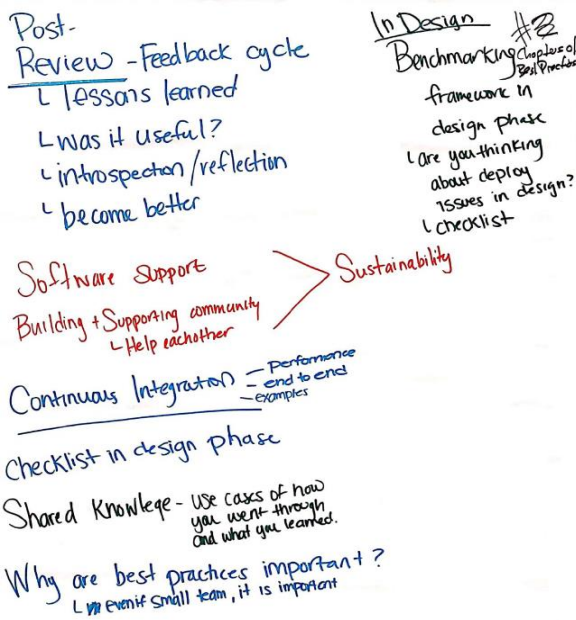 Post-
Review - Feedback cycle
└ lessons learned
└ Was it useful?
└ introspection/reflection
└ become better
In Design
#2
Benchmarking
Chapters of
Best Practices
framework in
design phase
└ are you thinking
about deploy
issues in design?
└ checklist
Software Support
Building + Supporting community
└ Help eachother
Sustainability
Continuous Integration
- Performance
- end to end
- examples
Checklist in design phase
Shared Knowlege - use cases of how
you went through
and what you learned.
Why are best practices important?
└ even if small team, it is important